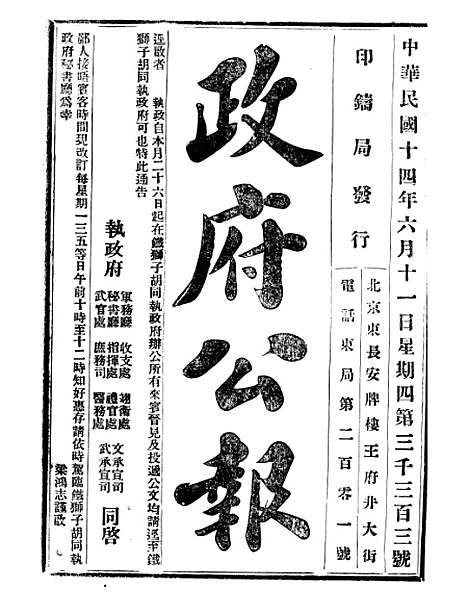 中華民國十四年六月十一日星期四第三千三百三號
印鑄局發行
北京東長安牌樓王府井大街
電話東局第二百零一號
政府公報
逕啟者 執政自本月二十六日起在鐵獅子胡同執政府辦公所有來賓晉見及投遞公文均請逕至鐵
獅子胡同執政府可也特此通告
執政府
軍務廳 收支處 翊衛處 文承宣司
秘書廳 指揮處 禮官處
武官處 庶務司 醫務處 武承宣司
同啓
鄙人接晤賓客時間現改訂每星期一三五等日午前十時至十二時知好惠存請依時駕臨鐵獅子胡同執
政府秘書廳為幸
梁鴻志謹啟